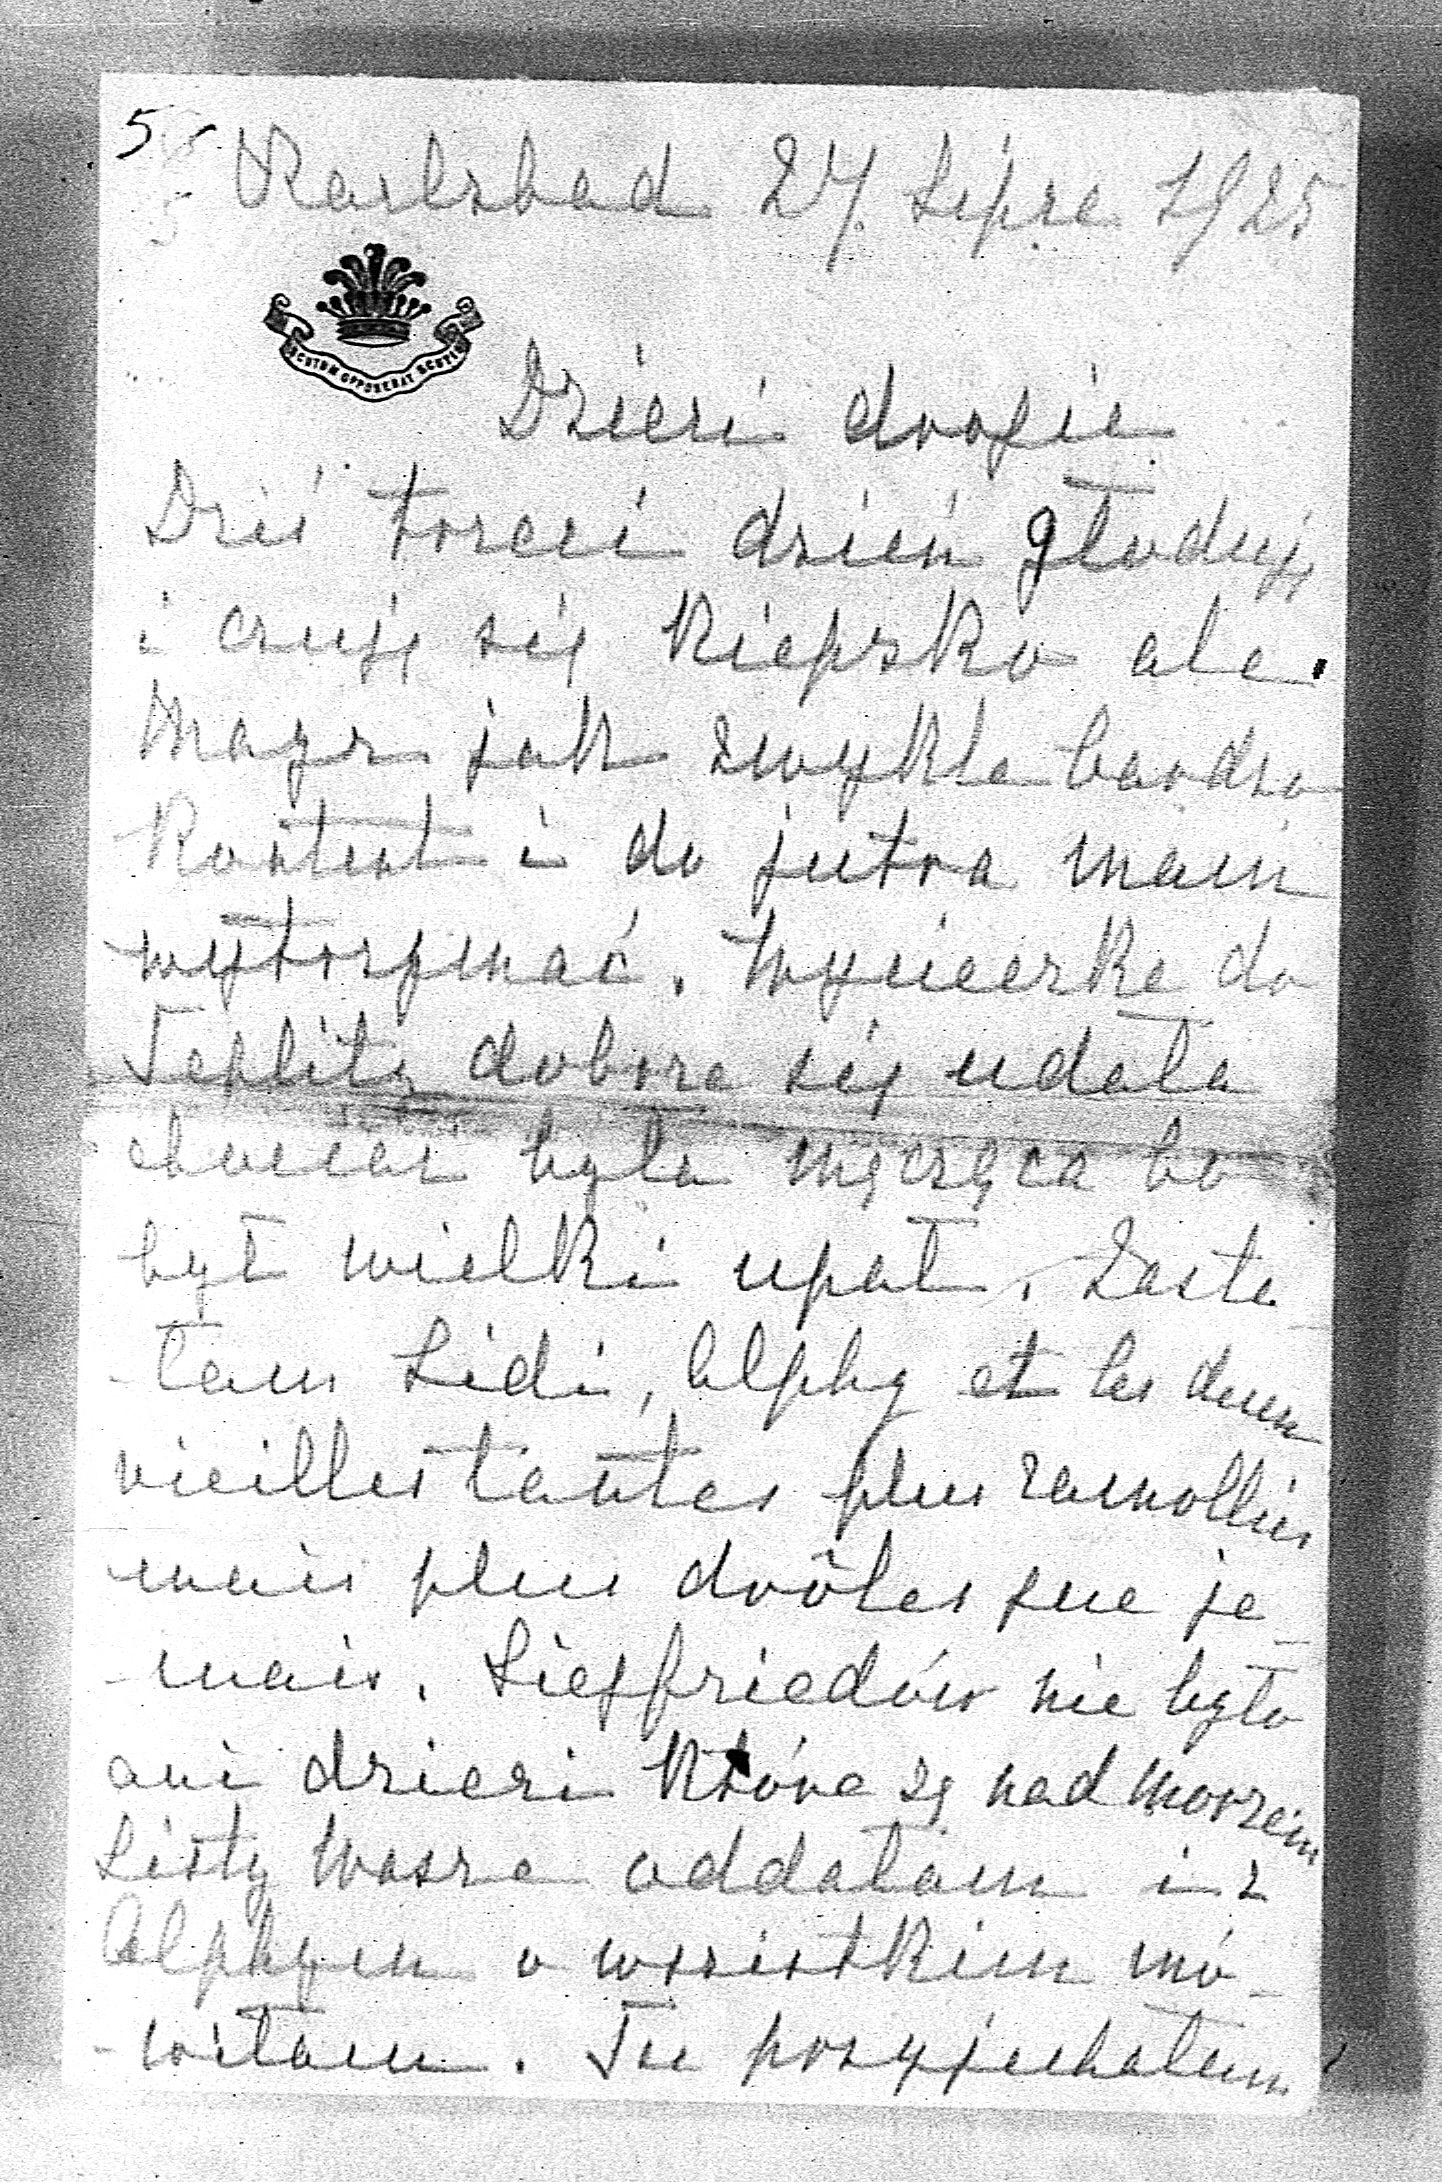 5
Karlsbad 27 Lipca 1925
SCUTUM OPPONEBAT SCUTIS
Dzieci drogie
Dziś trzeci dzień głoduję
i czuję się kiepsko ale
Mayr jak zwykle bardzo
kontent i do jutra mam
wytrzymać. Wycieczka do
Teplitz dobrze się udała
chociaż była męcząca bo
był wielki upał. Zasta
-łam Lidi, Alphy et les deux
vieilles tantes plus ramollies
mais plus drôles que ja
-mais. Siegfriedów nie było
ani dzieci które są nad morzem
Listy Wasze oddałam i z
Alphym o wszistkim mó-
-wiłam. Tu przyjechałam